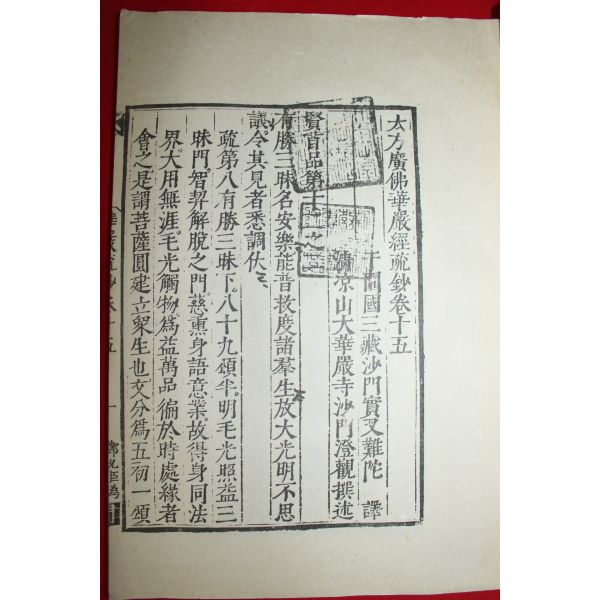 大方廣佛華嚴經疏鈔卷十五
于闐國三藏沙門實叉難陀　譯
清涼山大華嚴寺沙門澄觀撰述
賢首品第十二之
有勝三昧名安樂能普救度諸羣生放大光明不思
議令其見者悉調伏
疏第八有勝三昧下八十九頌半明毛光照益三
昧門智契解脫之門慈熏身語意業故得身同法
界大用無涯毛光觸物爲益萬品徧於時處緣者
會之是謂菩薩圓建立衆生也文分爲五初一頌
華嚴疏鈔卷十五
一